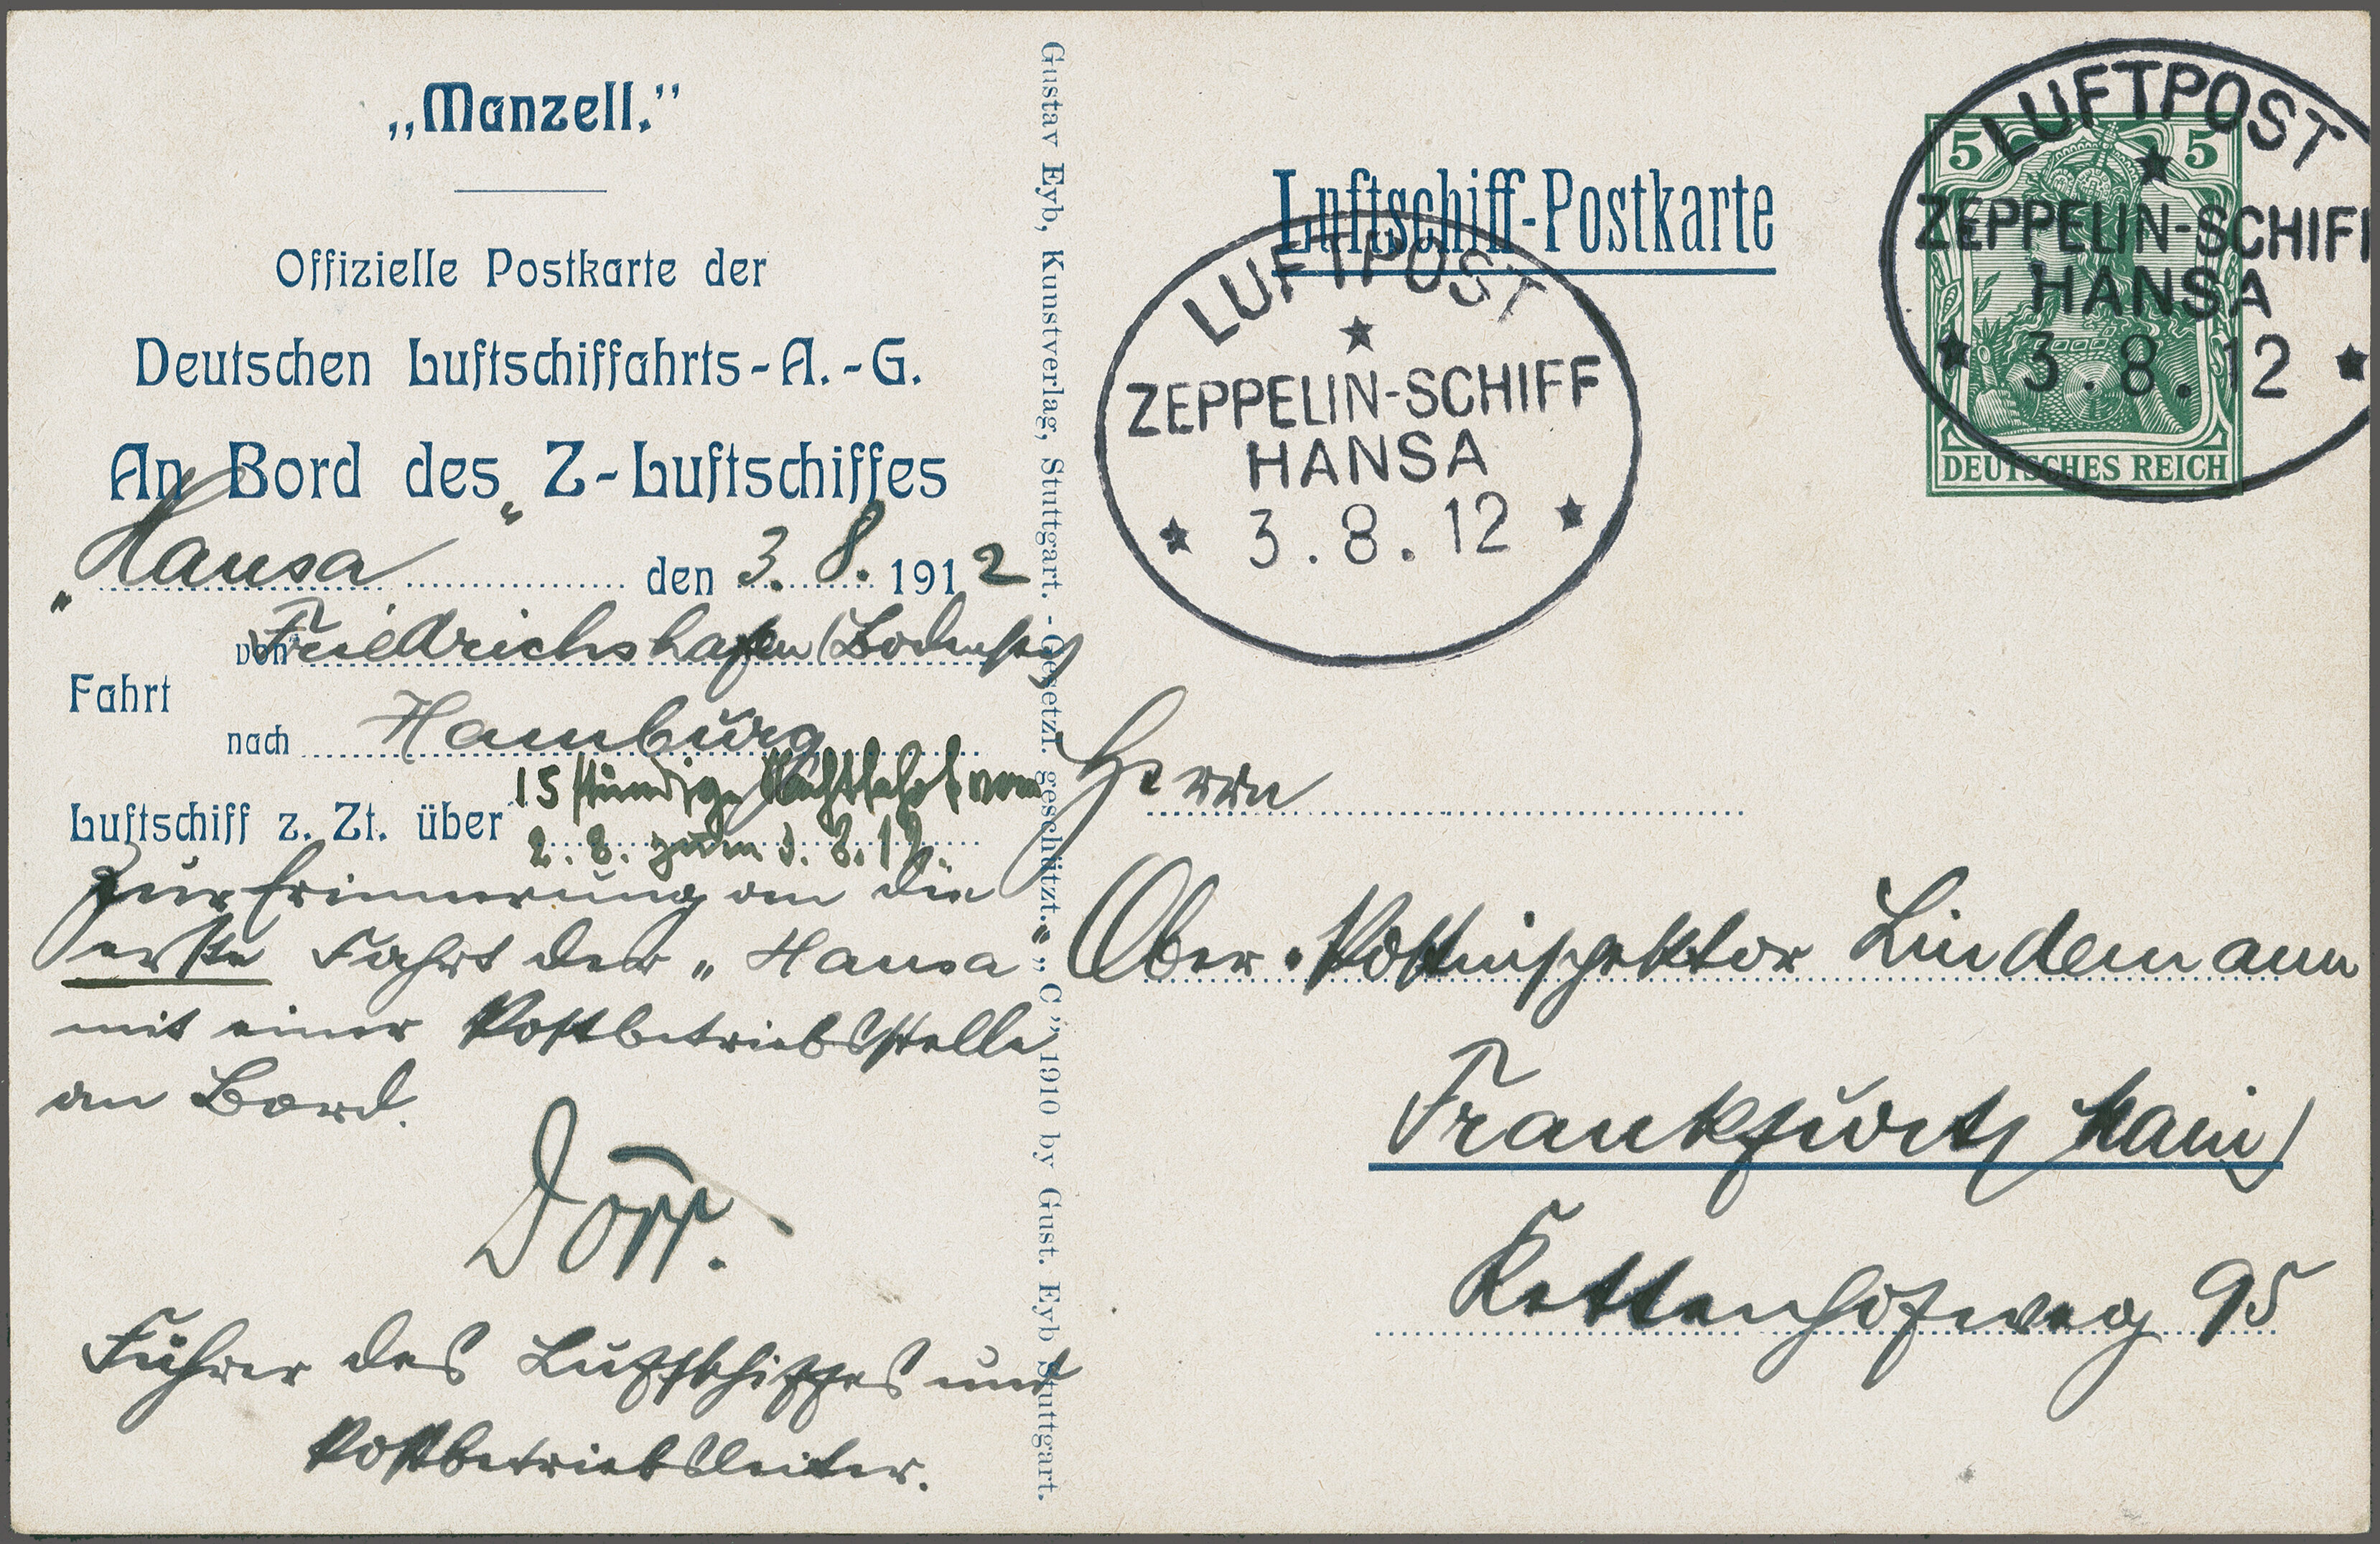 „Manzell.”
Offizielle Postkarte der
Deutschen Luftschiffahrts-A.-G.
An Bord des Z-Luftschiffes
„Hansa“ den 3. 8. 1912
Fahrt
von Friedrichshafen (Bodensee)
nach Hamburg
Luftschiff z. Zt. über 15 stündige Nachtfahrt vom
2. 8. zum 3. 8. 12.
Zur Erinnerung an die
erste Fahrt der „Hansa“
mit einer Postbetriebsstelle
an Bord.
Dörr.
Führer des Luftschiffes und
Postbetriebsleiter.
Gustav Eyb, Kunstverlag, Stuttgart. - Gesetzl. geschützt. „C” 1910 by Gust. Eyb Stuttgart.
Luftschiff-Postkarte
LUFTPOST
ZEPPELIN-SCHIFF
HANSA
3.8.12
5 5
DEUTSCHES REICH
LUFTPOST
ZEPPELIN-SCHIFF
HANSA
3.8.12
Herrn
Ober-Postinspektor Lindemann
Frankfurt (Main)
Kettenhofweg 95